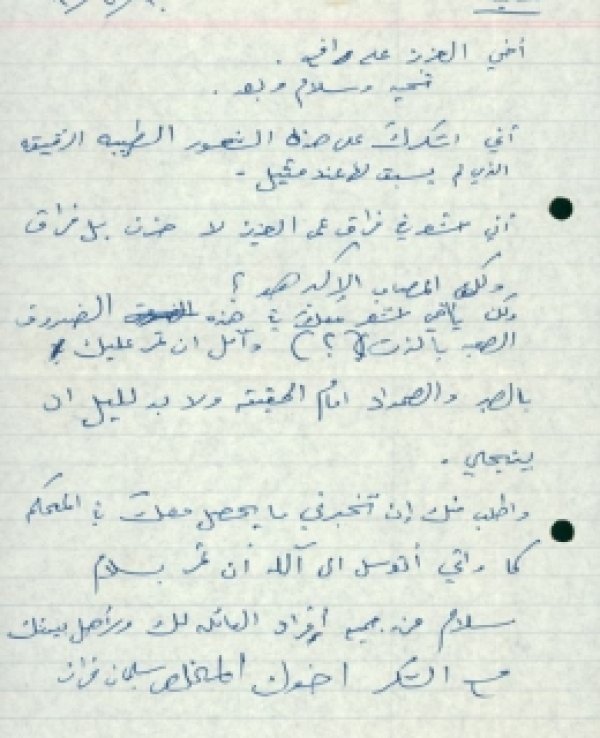 أخي العزيز علي مرافيه.
تحيه وسلام وبعد.
أني اشكرك على هذه الشعور الطيبه الرقيقه
الذي لم يسبق لها عند مثيل -
أني شعوري فراق عمي العزيز لا حزن بل فراق
ولكن المصاب الاكبر هو ؟
ولكن ياأخي شعر معك في هذه الظروف
الصعبه بالذات (؟) وآمل ان تمر عليك
بالصبر والصمود امام الحقيقه ولا بد لليل ان
ينجلي.
واطلب منك إن تخبرني ما يحصل معك في المحكم
كما واني أتوسل الى الله أن تمر بسلام
سلام من جميع أفراد العائله لك ولأهل بيتك
مع الشكر اخوك المخلص سلمان فراج